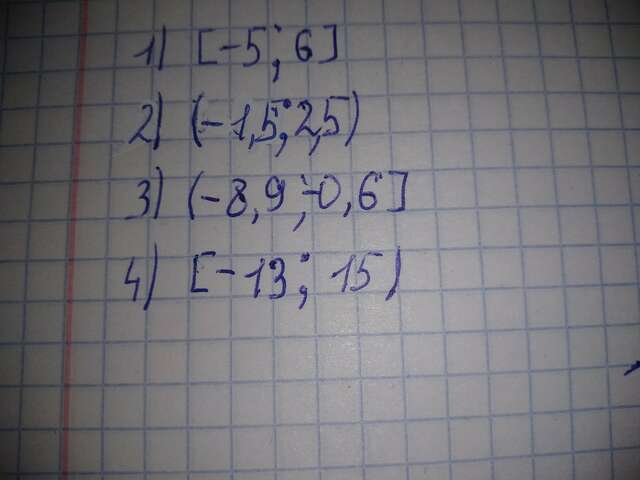 1) [-5; 6]
2) (-1,5; 2,5)
3) (-8,9; -0,6]
4) [-13; 15)